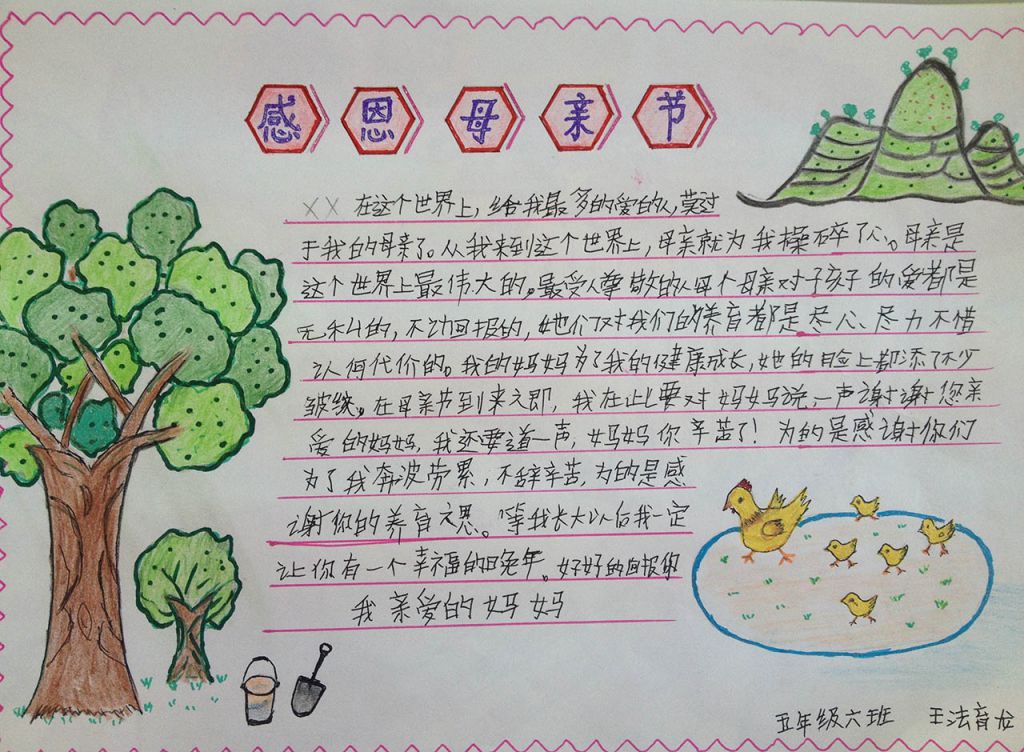 感恩母亲节
XX 在这个世界上,给我最多的爱的人,莫过
于我的母亲了。从我来到这个世界上,母亲就为我操碎了心。母亲是
这个世界上最伟大的。最受人尊敬的人每个母亲对子孩子的爱都是
无私的,不求回报的,她们对我们的养育都是尽心、尽力不惜
认何代价的。我的妈妈为了我的健康成长,她的脸上都添了不少
皱纹。在母亲节到来之即,我在此要对妈妈说,一声谢谢您亲
爱的妈妈,我还要道一声,妈妈你辛苦了!为的是感谢你们
为了我奔波劳累,不辞辛苦,为的是感
谢你的养育之恩。等我长大以后我一定
让你有一个幸福的晚年。好好的回报你
我亲爱的妈妈
五年级六班 王法育龙